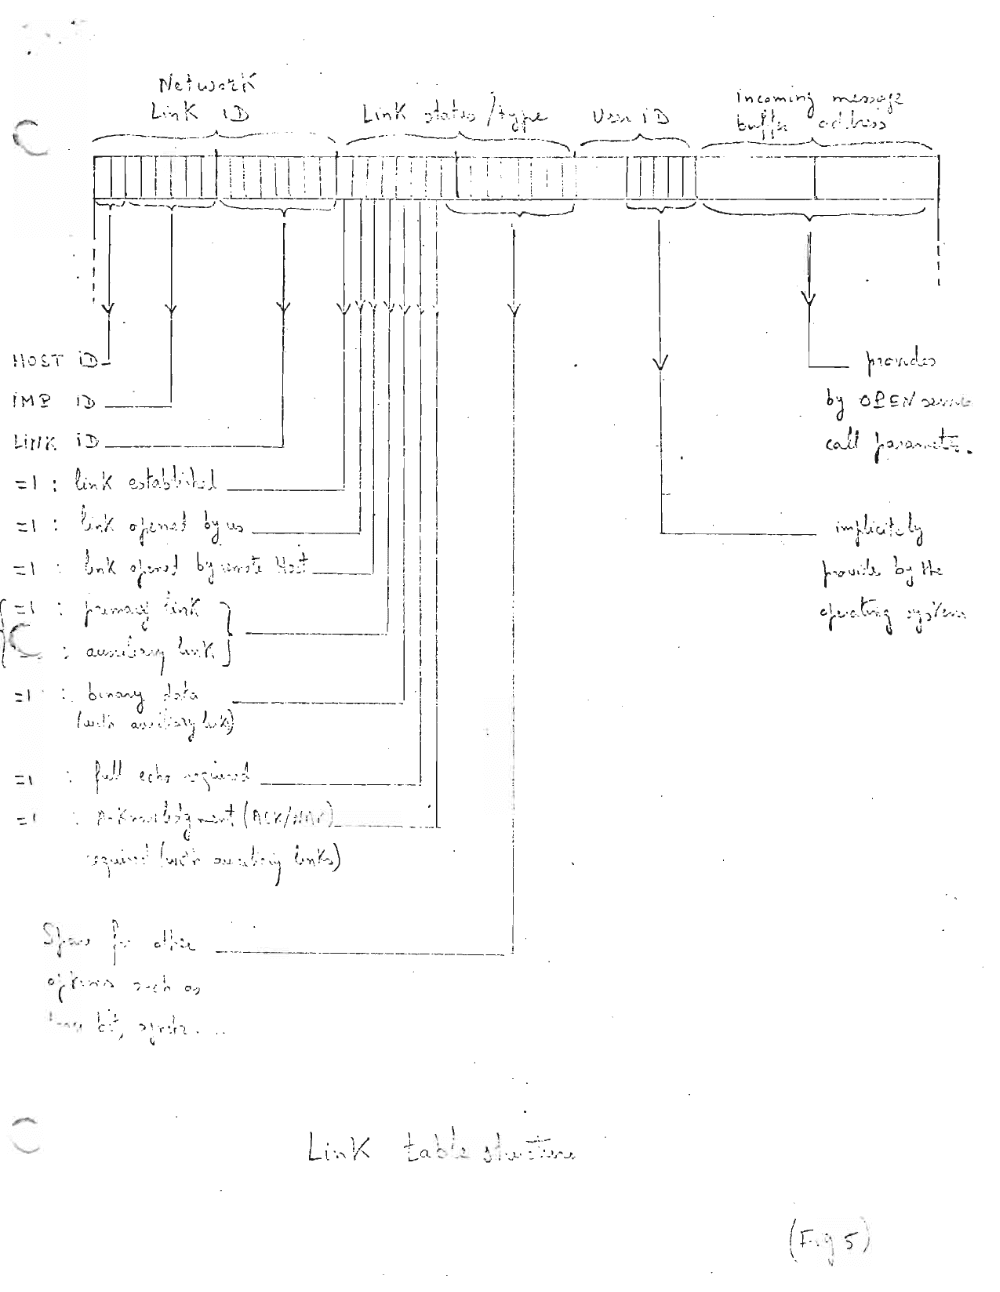 Network
Link ID
Link status/type
User ID
incoming message
buffer address
HOST ID
IMP ID
LINK ID
=1 : link established
=1 : link opened by us
=1 : link opened by remote Host
=1 : primary link
: auxiliary link
=1 : binary data
(with auxiliary link)
=1 : full echo required
=1 : Acknowledgment (ACK/NAK)
required (with auxiliary links)
Space for other
options such as
bit, synchr...
provided
by OPEN service
call parameter.
implicitely
provide by the
operating system
Link table structure
(Fig 5)